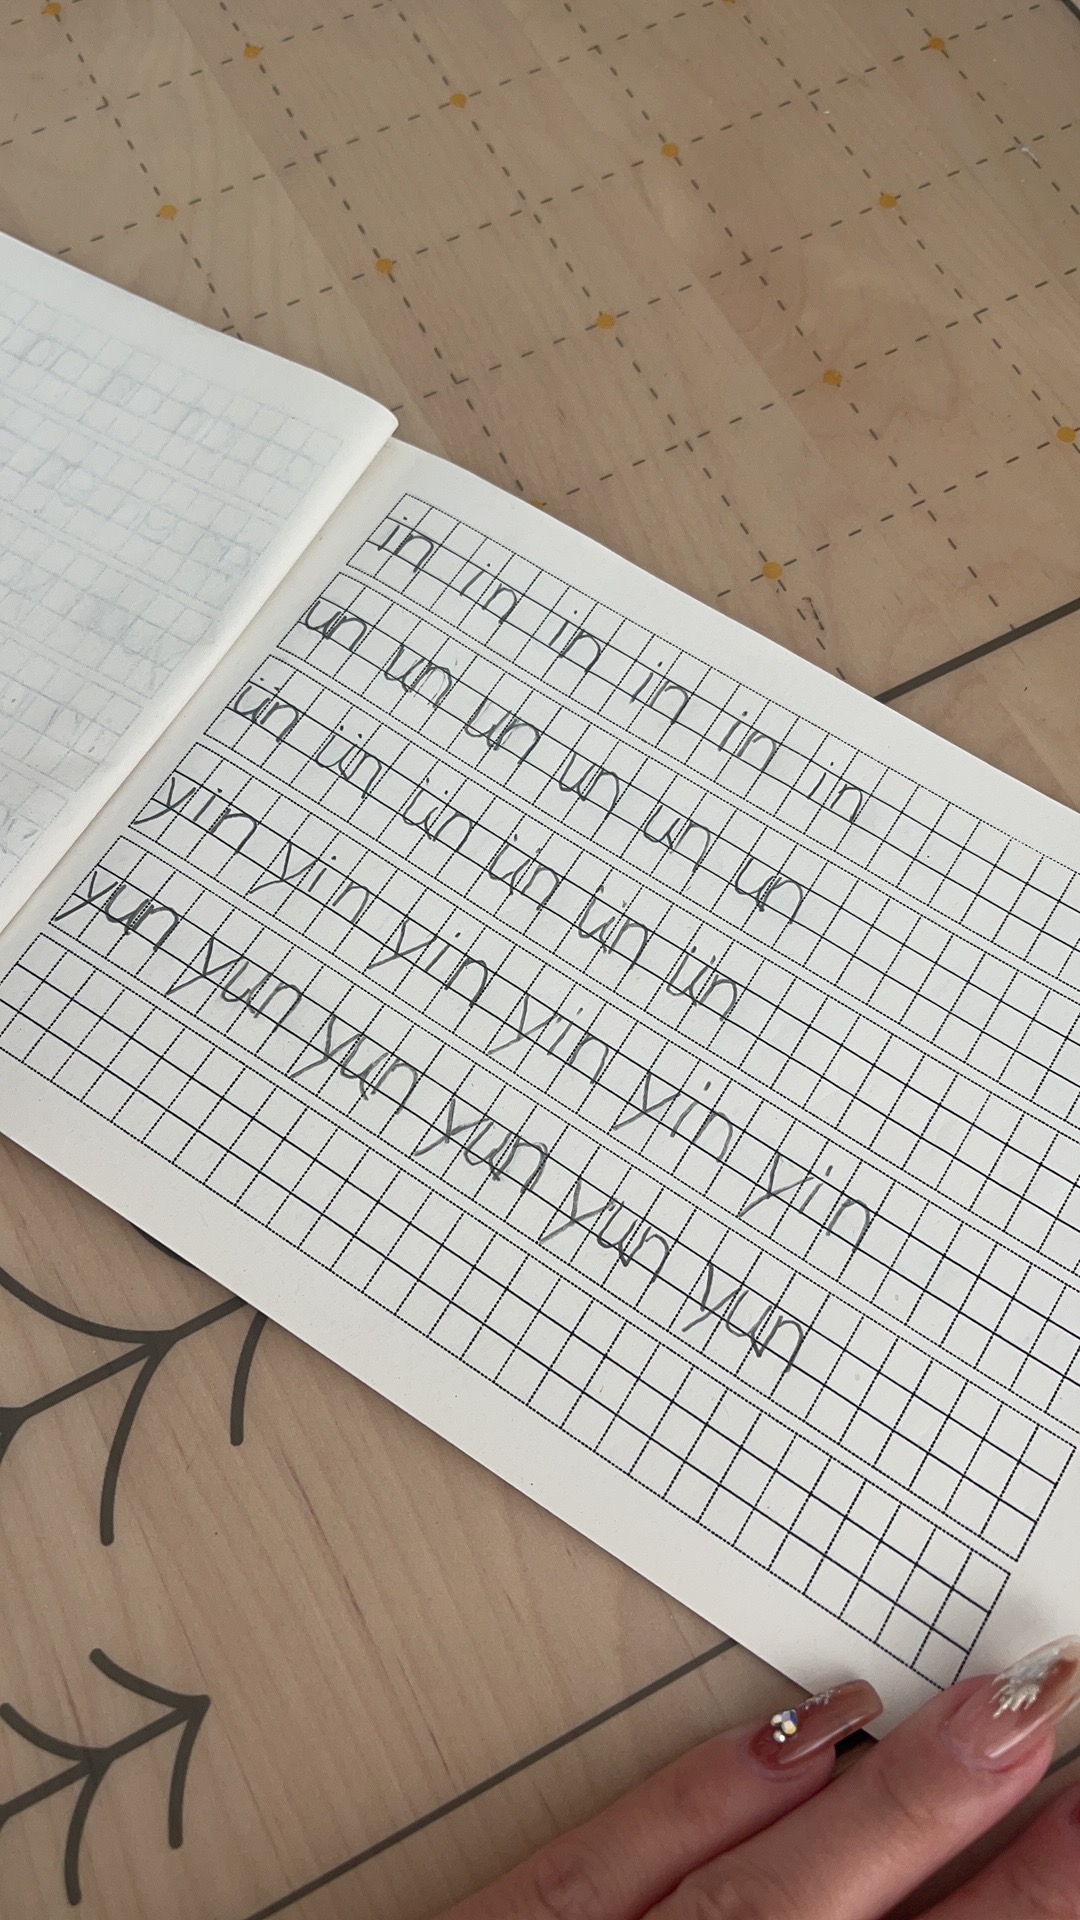 in in in in in in
un un un un un un
ün ün ün ün ün ün
yin yin yin yin yin yin
yun yun yun yun yun yun